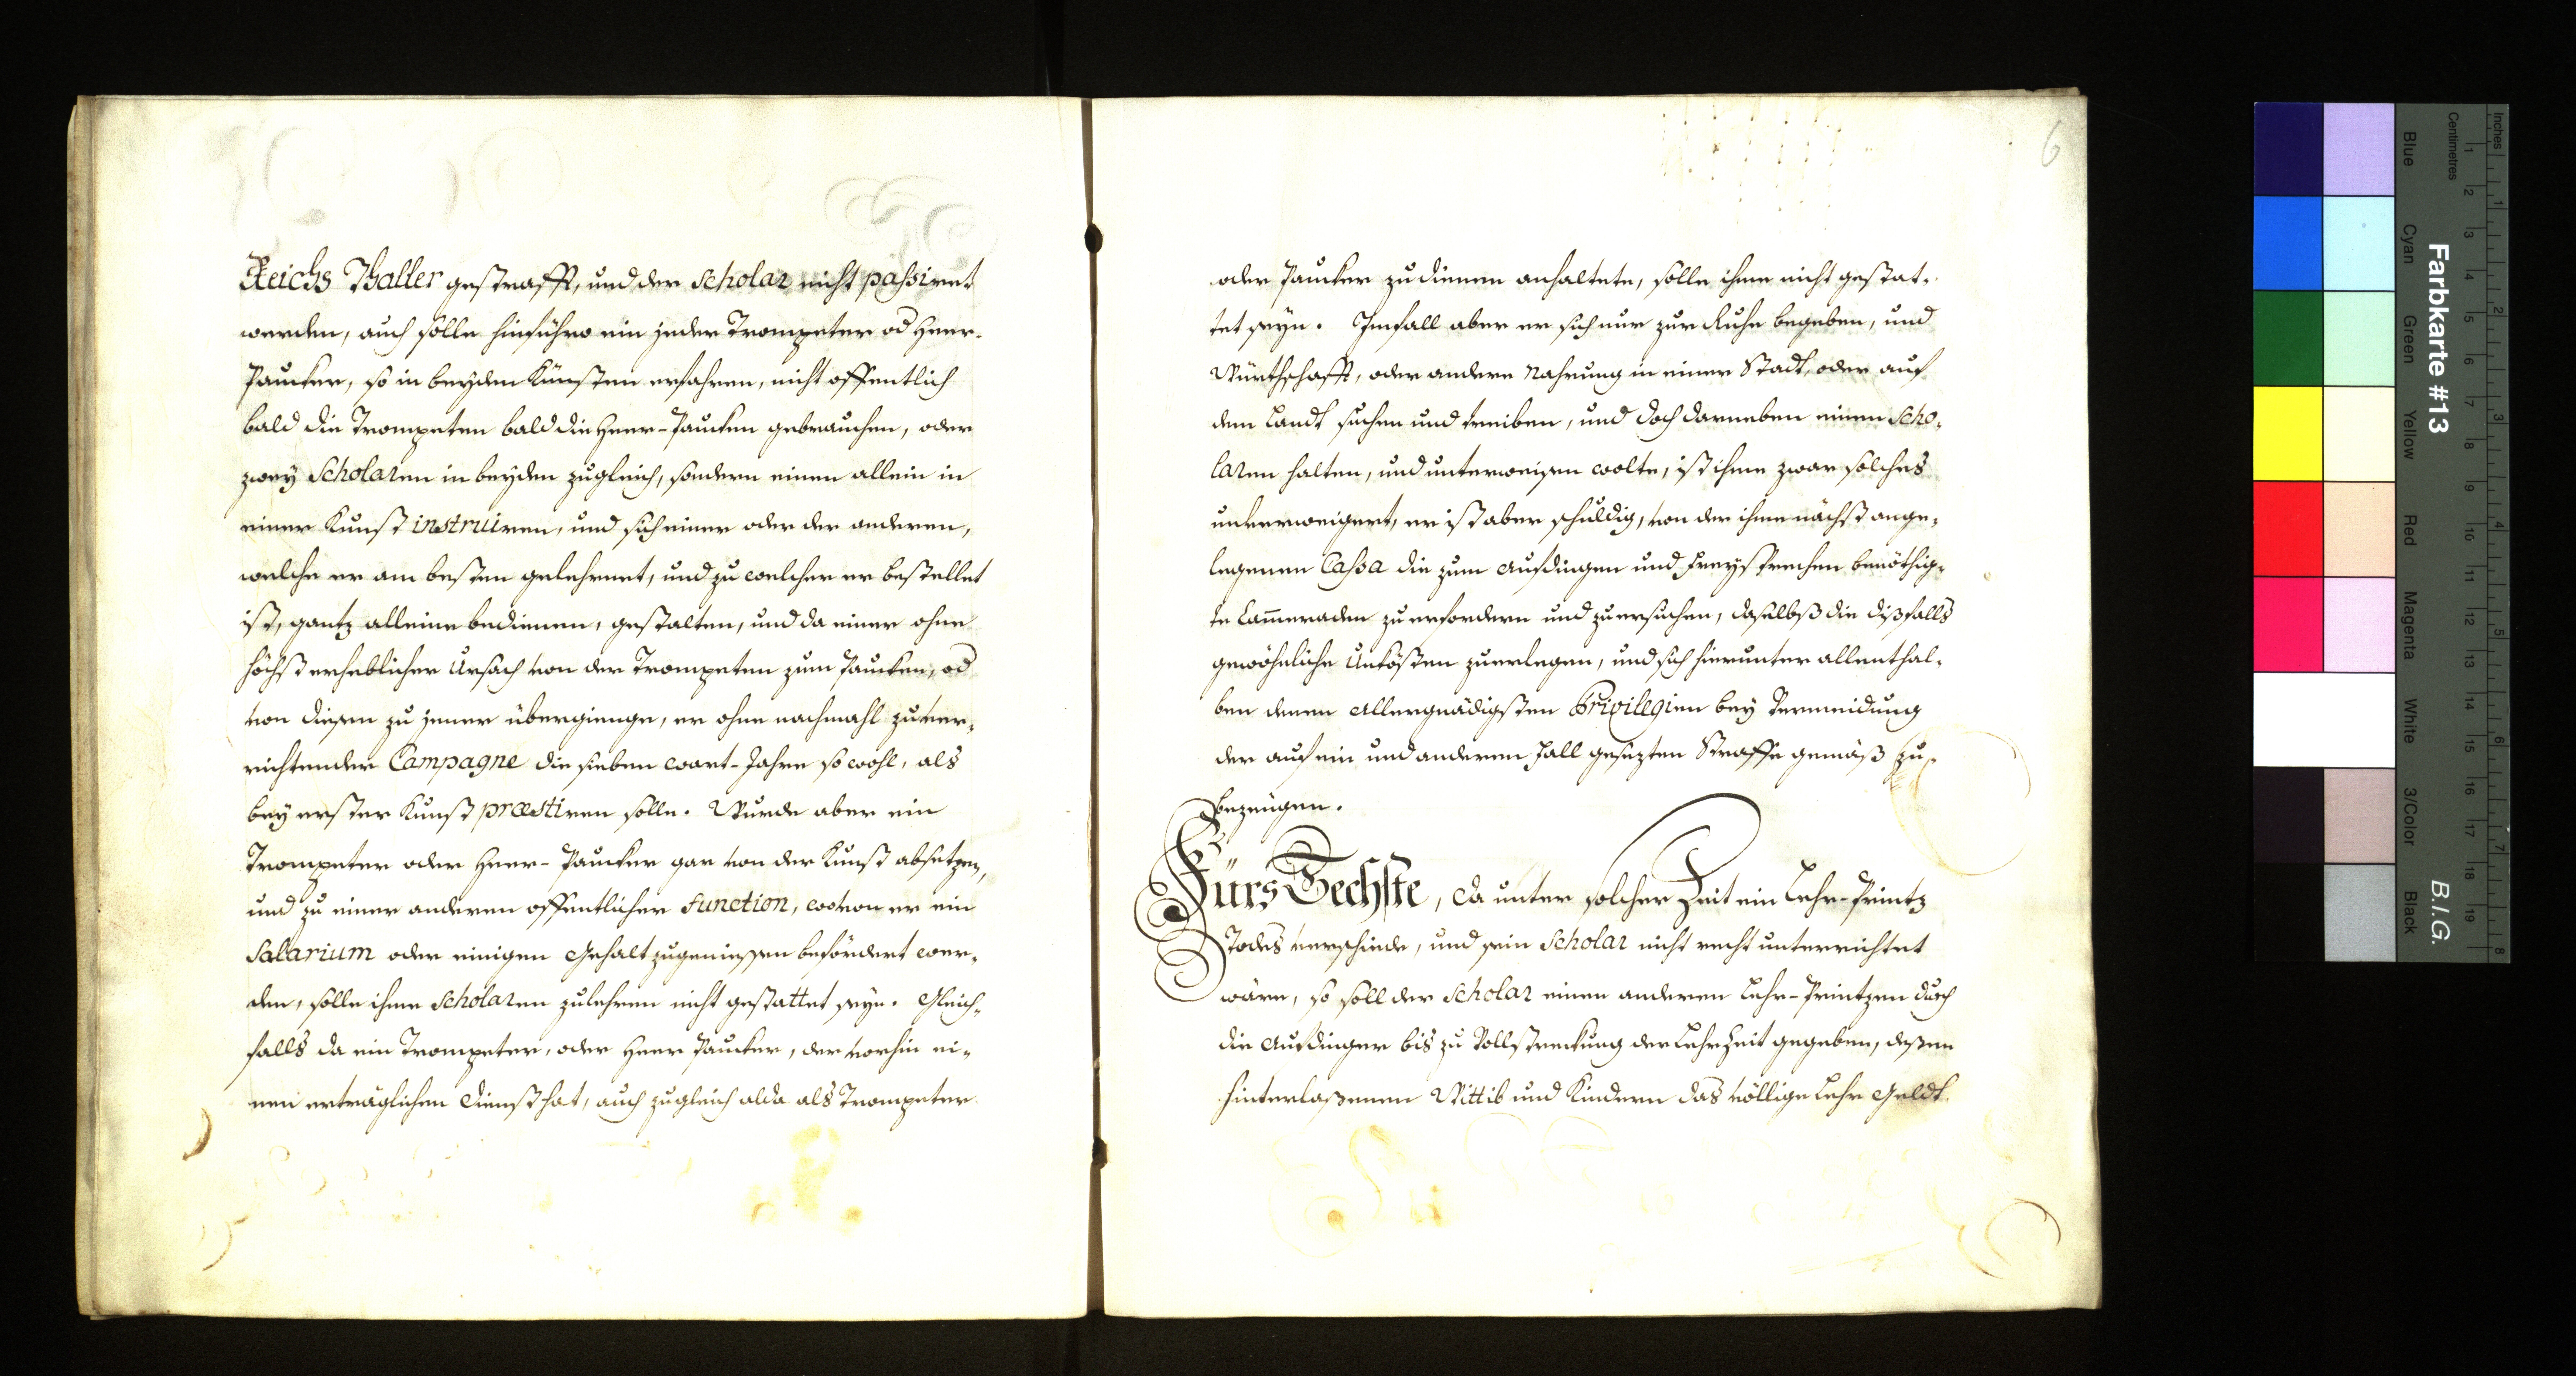 Reichs Thaller gestrafft, und der Scholar nicht passiret
werden, auch solle hinführo ein jeder Trompeter od Heer-
Paucker, so in beyden Künsten erfahren, nicht offentlich
bald die Trompeten bald die Heer-Paucken gebrauchen, oder
zwey Scholaren in beyden zugleich, sondern einen allein in
einer Kunst instruiren, und sich einer oder der anderen,
welche er am besten gelehrnet, und zu welcher er bestellet
ist, gantz alleine bedienen, gestalten, und da einer ohne
höchst erheblicher Ursach von der Trompeten zum Paucken, od
von diesen zu jener übergienge, er ohne nachmahl zu ver-
richtender Campagne die sieben wart-Jahre so wohl, als
bey erster Kunst præstiren solle. Wurde aber ein
Trompeter oder Heer-Paucker gar von der Kunst absetzen,
und zu einer anderen offentlicher Function, wovon er ein
Salarium oder einigen Gehalt zugeniessen befördert wer-
den, solle ihme Scholaren zulehren nicht gestattet seyn. Gleich-
falls da ein Trompeter, oder Heer Paucker, der vorhin ei-
nen erträglichen Dienst hat, auch zugleich alda als Trompeter
6
oder Paucker zu dienen anhaltete, solle ihme nicht gestat-
tet seyn. Imfall aber er sich nur zur Ruhe begeben, und
Würthschafft, oder andere Nahrung in einer Stadt, oder auf
dem Landt suchen und treiben, und doch darneben einen Scho-
laren halten, und unterweisen wolte, ist ihme zwar solches
unverweigert, er ist aber schuldig, von der ihme nächst ange-
legenen Cassa die zum Aufdingen und Freysprechen benöthig-
te Cam̅eraden zu erfordern und zu ersuchen, daselbst die dißfalls
gewöhnliche Unkösten zuerlegen, und sich hierunter allenthal-
ben denen Allergnädigsten Privilegien bey Vermeidung
der auf ein und anderen Fall gesezten Straffe gemäß zu-
bezeugen.
Fürs Sechste, da unter solcher Zeit ein Lehr-Printz
Todes verschiede, und sein Scholar nicht recht unterrichtet
wäre, so soll der Scholar einen anderen Lehr-Printzen durch
die Aufdinger bis zu Vollstreckung der Lehrzeit gegeben, deßen
hinterlaßenen Wittib und Kindern das völlige Lehr Geldt
Inches
Centimetres
Farbkarte #13
B.I.G.
Blue
Cyan
Green
Yellow
Red
Magenta
White
3/Color
Black
1 2 3 4 5 6 7 8 9 10 11 12 13 14 15 16 17 18 19
1 2 3 4 5 6 7 8